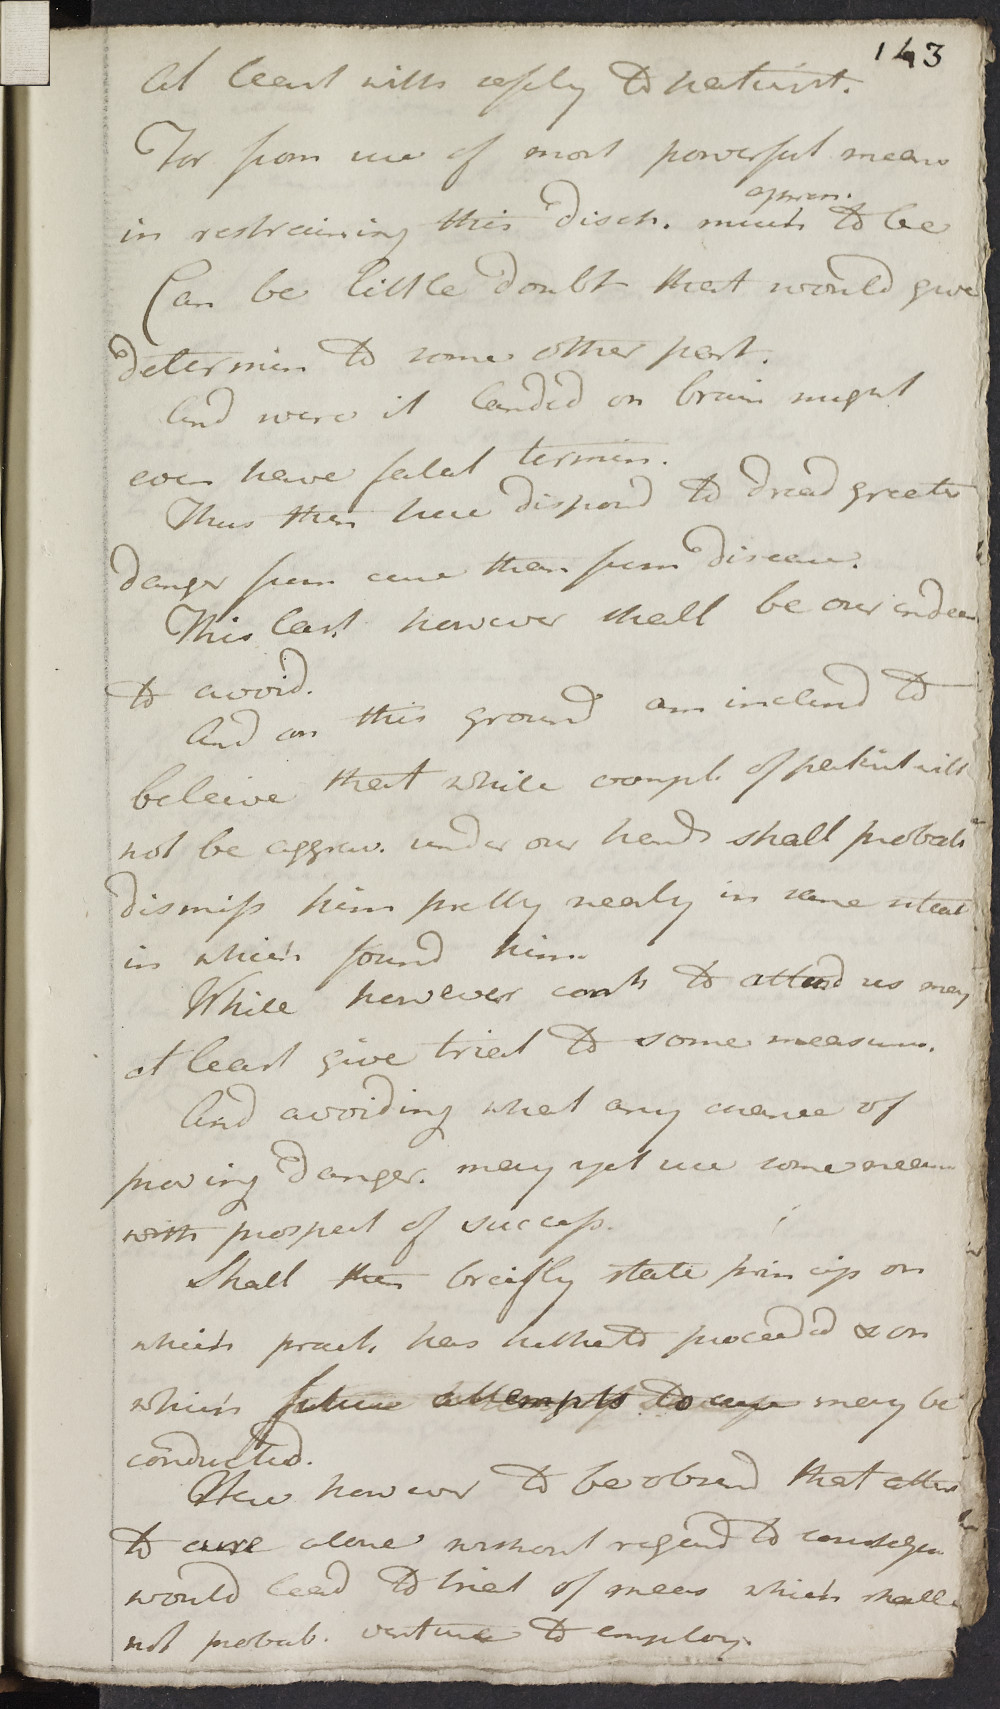 143
At least with reply to
For from use of most powerful means
appreh.
in restraining this disch. much to be
Can be little doubt that would give
determin to some other part.
And were it landed on brain might
even have fatal termin.
Thus then here disposd to dread greater
danger from cure than from disease.
This last however shall be our endea
to avoid.
And on this ground am inclind to
beleive that while compl. of patient will
not be aggrav. under our hands shall probab
dismiss him pretty nearly in same state
in which found him.
While however conts to attend us may
at least give trial to some measure.
And avoiding what any chance of
proving danger. may yet use some mean
with prospect of success.
Shall then breifly state princip on
which pract. has hitherto proceeded & on
which future attempts to cure may be
conducted.
Here however to be observd that attem
to cure alone without regard to conseque
would lead to trial of means which shall
not probab. venture to employ.